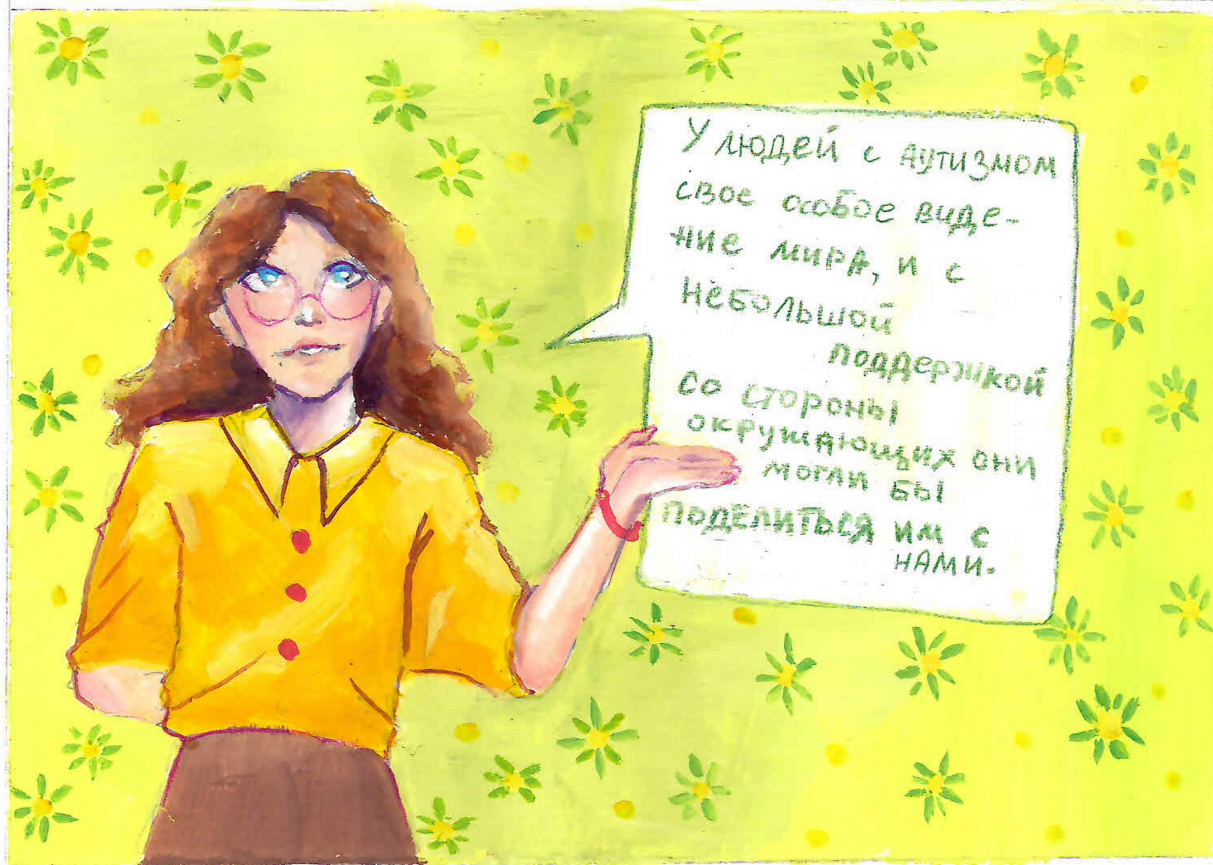 У людей с аутизмом
свое особое виде-
ние мира, и с
небольшой
поддержкой
со стороны
окружающих они
могли бы
поделиться им с
нами.